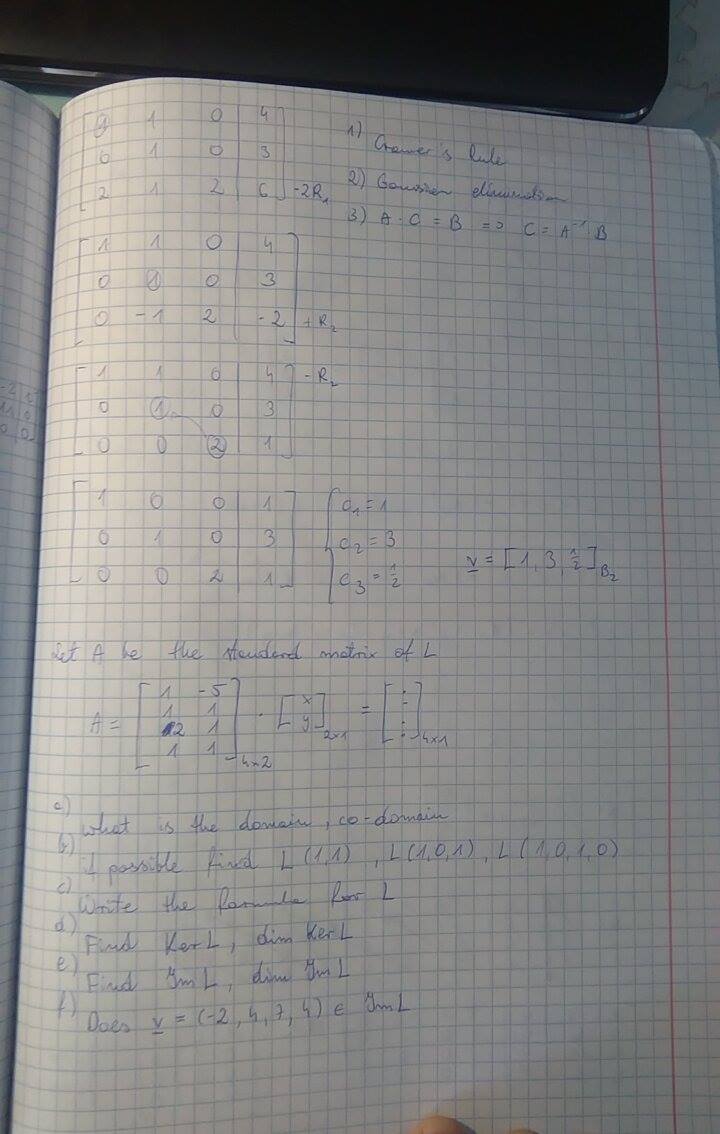 1 1 0 | 4
0 1 0 | 3
2 1 2 | 6 -2R₁
1) Cramer's Rule
2) Gaussian elimination
3) A · C = B => C = A⁻¹ · B
1 1 0 | 4
0 1 0 | 3
0 -1 2 | -2 +R₂
1 1 0 | 4 -R₂
0 1 0 | 3
0 0 2 | 1
1 0 0 | 1
0 1 0 | 3
0 0 2 | 1
c₁ = 1
c₂ = 3
c₃ = 1/2
v = [1, 3, 1/2]B₂
Let A be the standard matrix of L
A = [1 -5
1 1
2 1
1 1]4x2 · [x y]2x1 = [⋮]4x1
a) What is the domain, co-domain
b) if possible find L(1,1), L(1,0,1), L(1,0,1,0)
c) Write the formula for L
d) Find Ker L, dim Ker L
e) Find Im L, dim Im L
f) Does v = (-2, 4, 7, 4) ∈ Im L